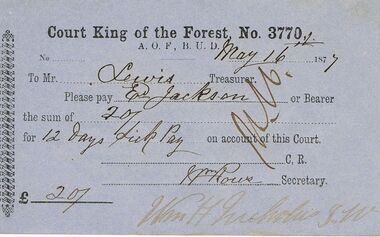 Court King of the Forest, No. 3770.
A. O. F., B. U. D.
No May 16th 1877
To Mr. Lewis Treasurer.
Please pay Ed Jackson or Bearer
the sum of 20/
for 12 Days Sick Pay on account of this Court.
C. R.
Secretary.
£ 20/
Wm H Nicholls J. W